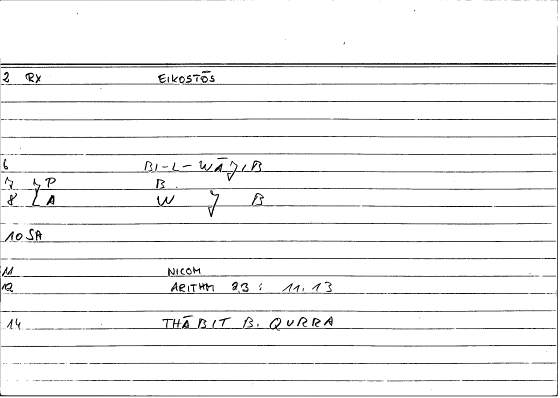 2 RX EIKOSTŌS
6 BI-L-WĀǰIB
7 P B
8 A W ǰ B
10 SA
11 NICOM
12 ARITHM 83 : 11.13
14 THĀBIT B. QURRA